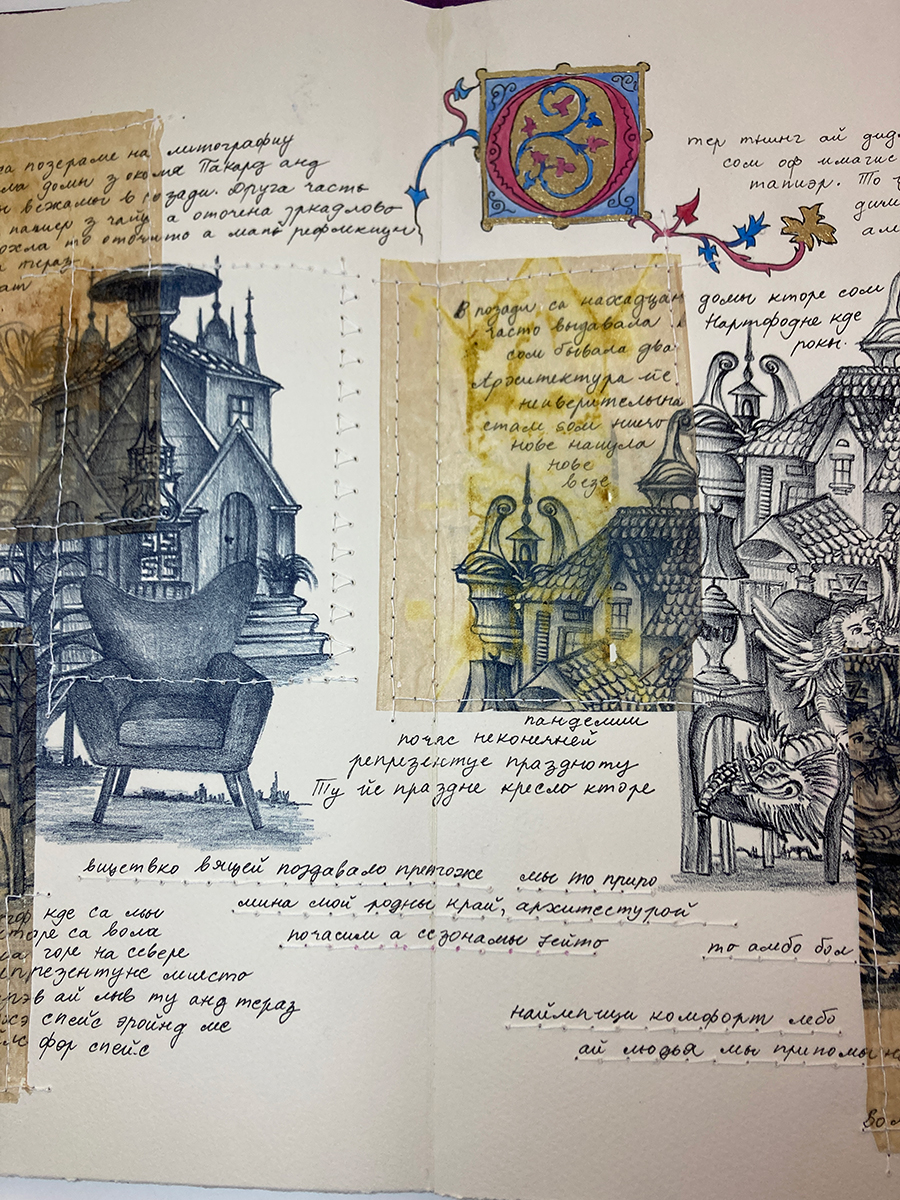 позераме на литографиу
домы з окола Пакард анд
вежамы в позади. Друга часть
папиер з чаю а оточена зркадлово
то оточито а мапь рефлекциу
тераз
О
тер тнинг ай дид
сом оф имагис
тапиэр. То
В позади са нахадцаи
часто выдавала
сом бывала два
Архитектура йе
неиверительна
стам бом ничо
нове нашула
нове
везе
домы кторе сом
Нартфодне кде
рокы.
пандемии
почяс неконечней
репрезентуе праздноту
Ту йе праздне кресло кторе
вицетвко вящей поздавало претоже мы то приро
мина мой родны край, архитестурой
почасим а сезонамы зейто
то амбо бол
кде са мы
са вола
горе на севере
презентуне миисто
ай лыв ту анд тераз
спейс эройнд ме
фор спейс
найлепищи комфорт лебо
ай людья мы припомы